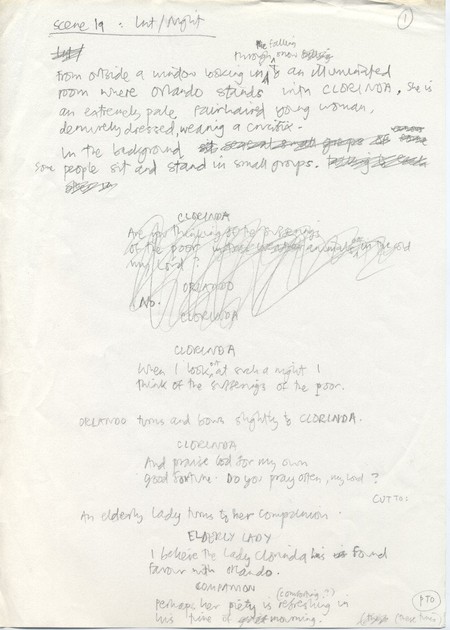 Scene 19 : Int/Night
1
the falling
From outside a window looking through snow to an illuminated
room where Orlando stands with CLORINDA, she is
an extremely pale fairhaired young woman,
demurely dressed, wearing a crucifix.
In the background
some people sit and stand in small groups.
CLORINDA
Are you thinking of the sufferings
of the poor in the cold
my Lord?
ORLANDO
No.
CLORINDA
CLORINDA
When I look out at such a night I
think of the sufferings of the poor.
ORLANDO turns and bows slightly to CLORINDA.
CLORINDA
And praise God for my own
good fortune. Do you pray often, my Lord?
CUT TO:
An elderly lady turns to her companion.
ELDERLY LADY
I believe the Lady Clorinda has found
favour with Orlando.
COMPANION
(comforting?)
Perhaps her piety is refreshing in
his time of mourning.
PTO